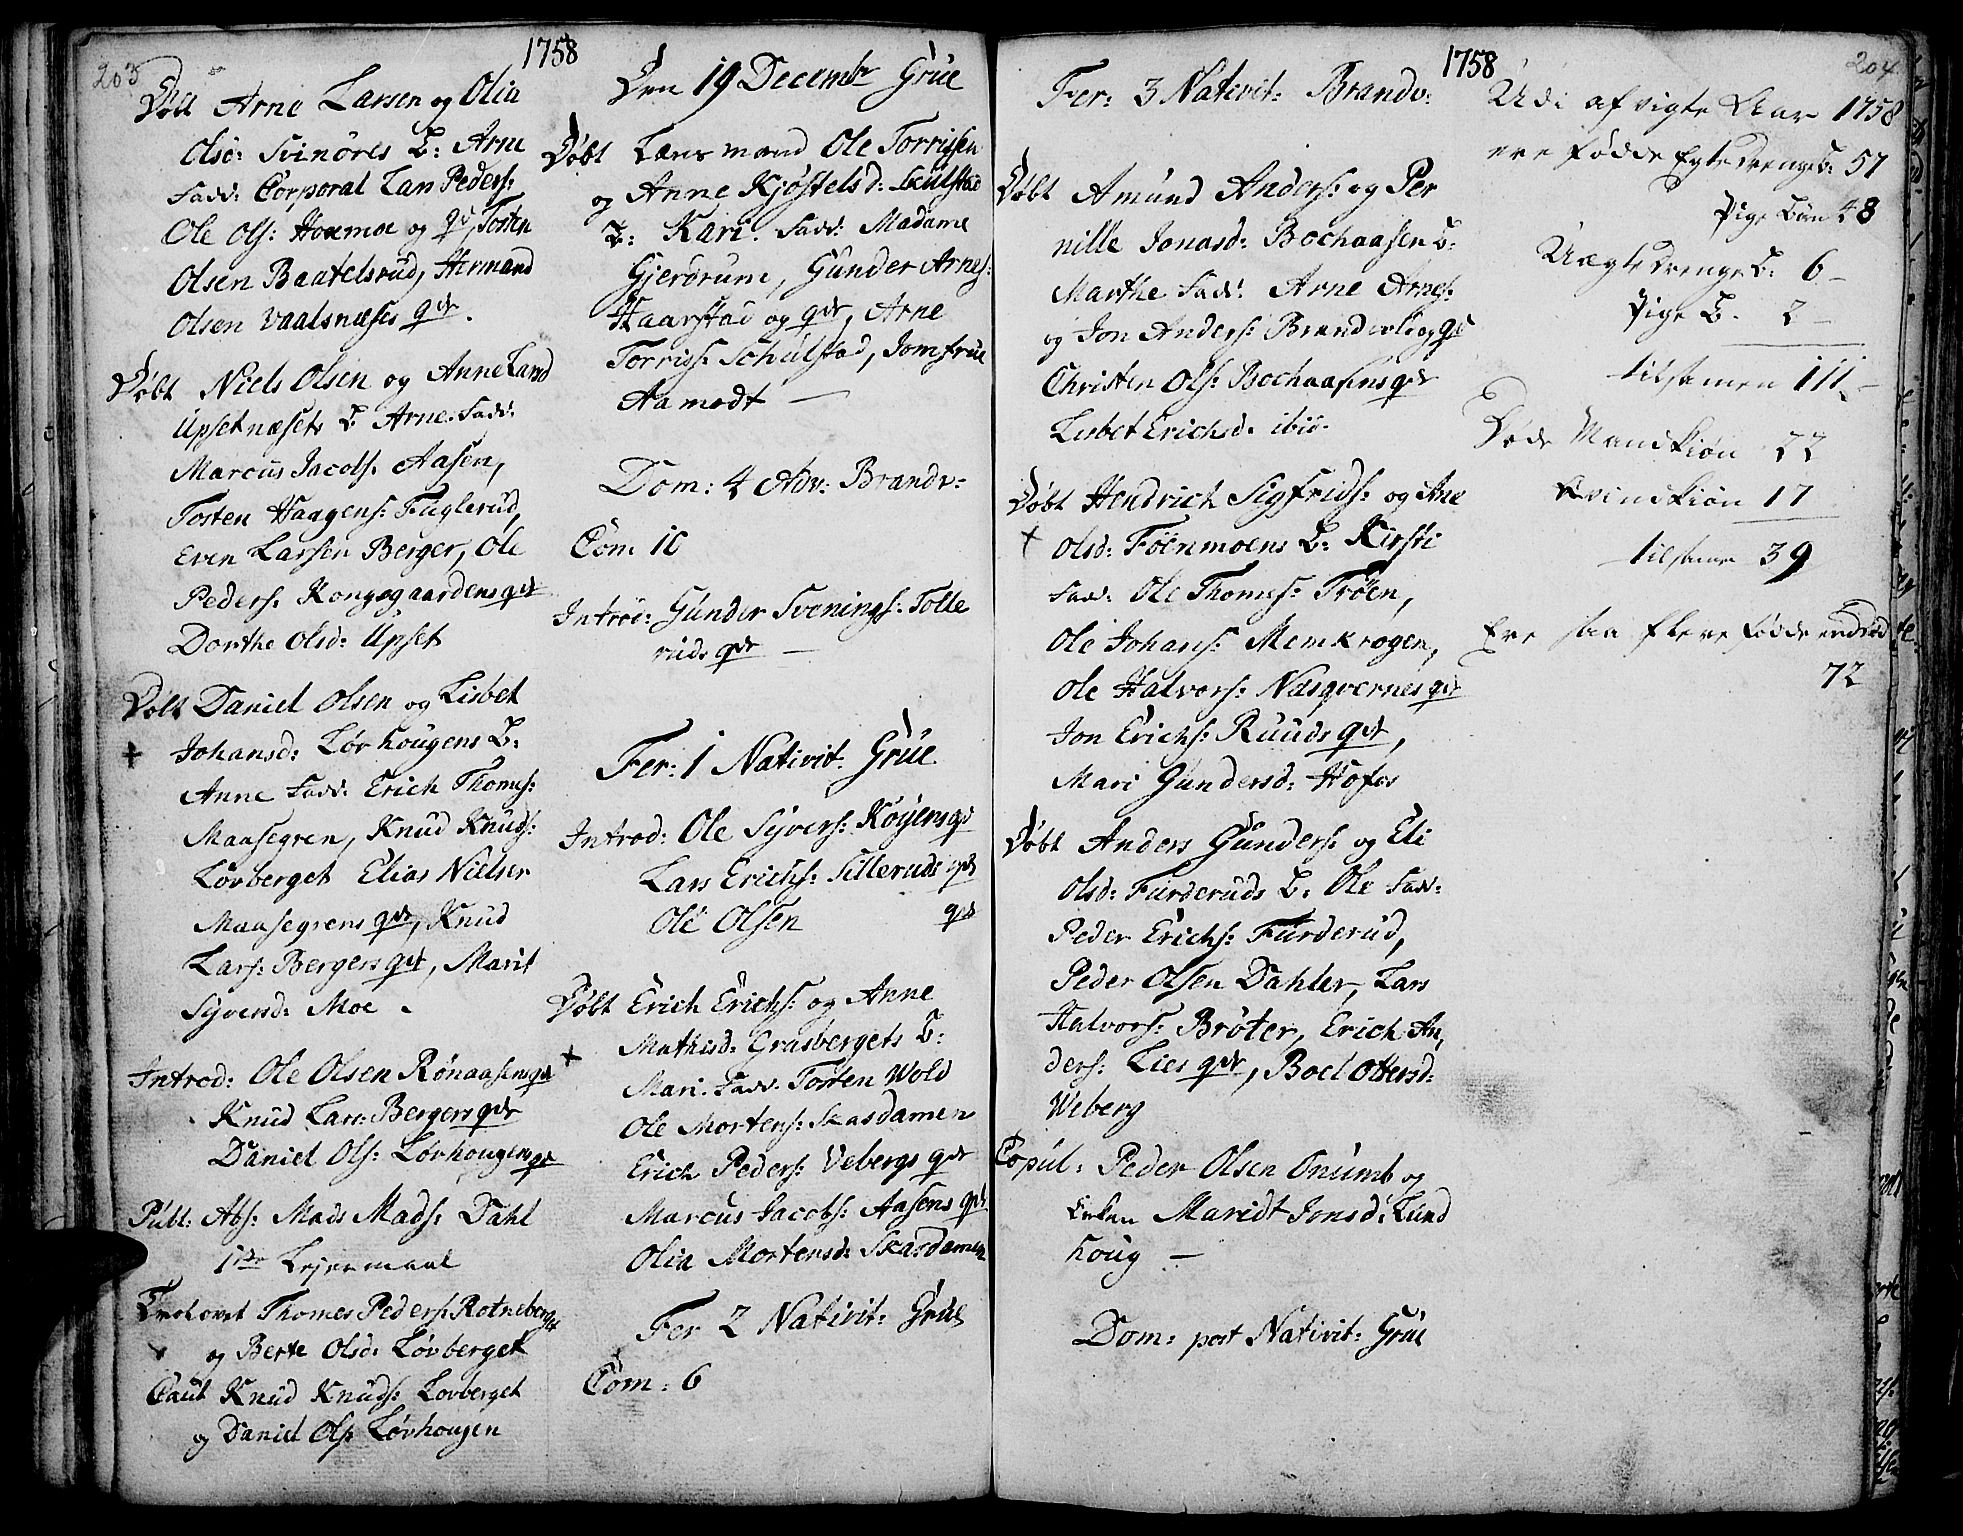 203
1758
Døbt Arne Larsen og Olia
Olsd: Svinöres B: Arne
Fadd: Corporal Lars Peders:
Ole Ols: Hoxmoe og qd, Tosten
Olsen Baatelsrud, Hermand
Olsen Vaalsnæses qdr.
Døbt Niels Olsen og Anne Larsd
Upsetnæsets B: Arne. Fadd:
Marcus Jacobs: Aasen,
Tosten Haagens: Fuglerud,
Even Larsen Berger, Ole
Peders: Kongsgaardens qdr
Dorthe Olsd: Upset
Døbt Daniel Olsen og Lisbet
+ Johansd: Lövhougens B:
Anne Fadd: Erich Thomes:
Maasegren, Knud Knuds:
Lövberget Elias Nielsen
Maasegrens qdr, Knud
Lars: Bergers qdr, Marit
Syversd: Moe.
Introd: Ole Olsen Rönaasens qdr
Knud Lars: Bergers qdr
Daniel Ols: Lövhougens qdr
Publ: Abs: Mads Mads: Dahl
1ste Lejermaal
Trolovet Thomes Peders: Rotneberget
og Berte Olsd: Lövberget
Caut Knud Knuds: Lovberget
og Daniel Ols: Lövhougen
Den 19 Decembr Grue
Døbt Lensmand Ole Torrissen
og Anne Kjøstelsd: Skulstad
B: Kari. Fadd: Madame
Gjerdrum, Gunder Arnes:
Haarstad og qdr, Arne
Torriss: Schulstad, Jomfrue
Aamodt —
Dom: 4 Adv: Brandv:
Com: 10
Introd: Gunder Svenings: Tolle
ruds qdr —
Fer: 1 Nativit: Grue
Introd: Ole Syvers: Köyens qdr
Lars Erichs: Silleruds qdr
Ole Olsen qdr
Døbt Erich Erichs: og Anne
+ Mathisd: Grasbergets B:
Mari. Fadd: Torsten Wold
Ole Mortens: Skasdamen
Erich Peders: Vebergs qdr
Marcus Jacobs: Aasens qdr
Olia Mortensd: Skasdamen
Fer 2 Nativit: Grue
Com: 6
1758
204
Fer: 3 Nativit: Brandv:
Døbt Amund Anders: og Per
nille Jonasd: Bochaasen B:
Marthe Fadd: Arne Arnes:
og Jon Anders: Brandvold og qd
Christen Ols: Bochaasens qdr
Lisbet Erichsd: ibid.
Døbt Hendrich Sigfrids: og Ane
+ Olsd: Föenmoens B: Kirsti
Fadd: Ole Thomes: Tröen,
Ole Johans: Memkrogen,
Ole Halvors: Næsqvernes qdr
Jon Erichs: Ruuds qdr,
Mari Gundersd: Hofos
Døbt Anders Gunders: og Eli
Olsd: Furderuds B: Ole Fadd:
Peder Erichs: Furderud,
Peder Olsen Dahler, Lars
Halvors: Bröter, Erich An,
ders: Lies qdr, Boel Ottersd:
Weberg
Copul: Peder Olsen Onumb og
Maridt Jonsd: Lund
houg —
Dom: post Nativit: Grue
Udi afvigte Aar 1758
ere fødde Egte drenge B: 57
Pige Børn 48
Uægte drenge B: 6 —
Pige B. 2 —
tilsamen 111 —
Døde Mandkiøn 22
Qvindkiøn 17
tilsamen 39
Ere saa flere fødde end død
72